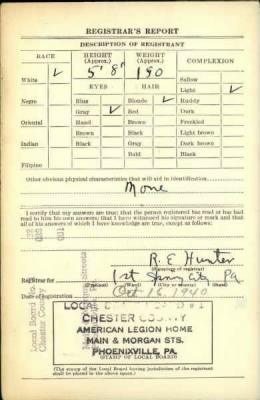 REGISTRAR'S REPORT
DESCRIPTION OF REGISTRANT
RACE
HEIGHT (Approx.)
WEIGHT (Approx.)
COMPLEXION
White ✓
5' 8"
190
Sallow
EYES
HAIR
Light ✓
Negro
Blue
Blonde ✓
Ruddy
Gray ✓
Red
Dark
Oriental
Hazel
Brown
Freckled
Brown
Black
Light brown
Indian
Black
Gray
Dark brown
Bald
Black
Filipino
Other obvious physical characteristics that will aid in identification
None
I certify that my answers are true; that the person registered has read or has had
read to him his own answers; that I have witnessed his signature or mark and that
all of his answers of which I have knowledge are true, except as follows:
R. E. Hunter
(Signature of registrar)
Registrar for 1st Pa.
(Precinct) (Ward) (City or county) (State)
Date of registration Oct 16, 1940
LOCAL
CHESTER COUNTY
AMERICAN LEGION HOME
MAIN & MORGAN STS.
PHOENIXVILLE, PA.
(STAMP OF LOCAL BOARD)
(The stamp of the Local Board having jurisdiction of the registrant
shall be placed in the above space.)
Local Board No.
Chester County